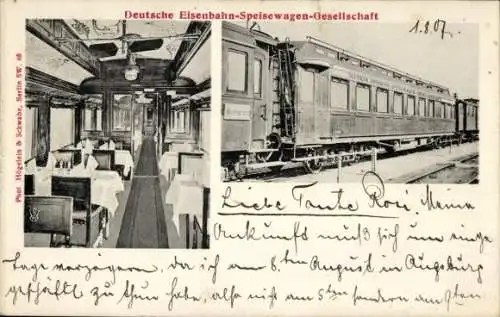 Deutsche Eisenbahn-Speisewagen-Gesellschaft
1.8.07.
Phot. Högelein & Schwabe, Berlin SW. 68
Liebe Tante Rosi. Meine
Ankunft muß sich um einige
Tage verzögern, da ich am 8.ten August in Augsburg
geschäftl. zu thun habe, also nicht am 5ten sondern am 9ten